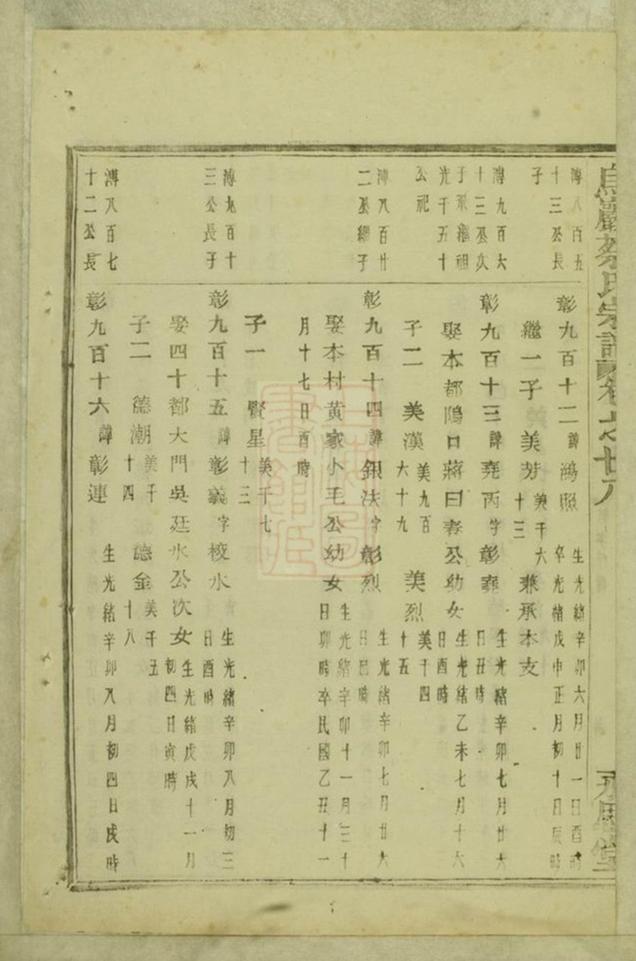 烏巖蔡氏宗譜卷之廿八
溥八百五
十三公長
子
彰九百十二諱鴻照
生光緒辛卯六月廿一日酉時
卒光緒戊申正月初十日辰時
繼一子 美芳美千六十三 兼承本支
溥九百六
十三公次
子承繼祖
光千五十
公祀
彰九百十三諱堯丙字彰堯
生光緒辛卯七月廿六
日丑時
娶本都隝口蔣日春公幼女
生光緒乙未七月十六
日酉時
子二 美漢美九百六十九 美烈美千四十五
溥八百廿
二公繼子
彰九百十四諱銀法字彰烈
生光緒辛卯七月廿六
日巳時
娶本村黃家小毛公幼女
生光緒辛卯十一月三十
日卯時卒民國乙丑十一
月十七日酉時
子一 賢星美千七十三
溥九百十
三公長子
彰九百十五諱彰義字棱水
生光緒辛卯八月初三
日酉時
娶四十都大門吳廷水公次女
生光緒戊戌十一月
初四日寅時
子二 德潮美千十四 德金美千五十八
溥八百七
十二公長
彰九百十六諱彰連
生光緒辛卯八月初四日戌時